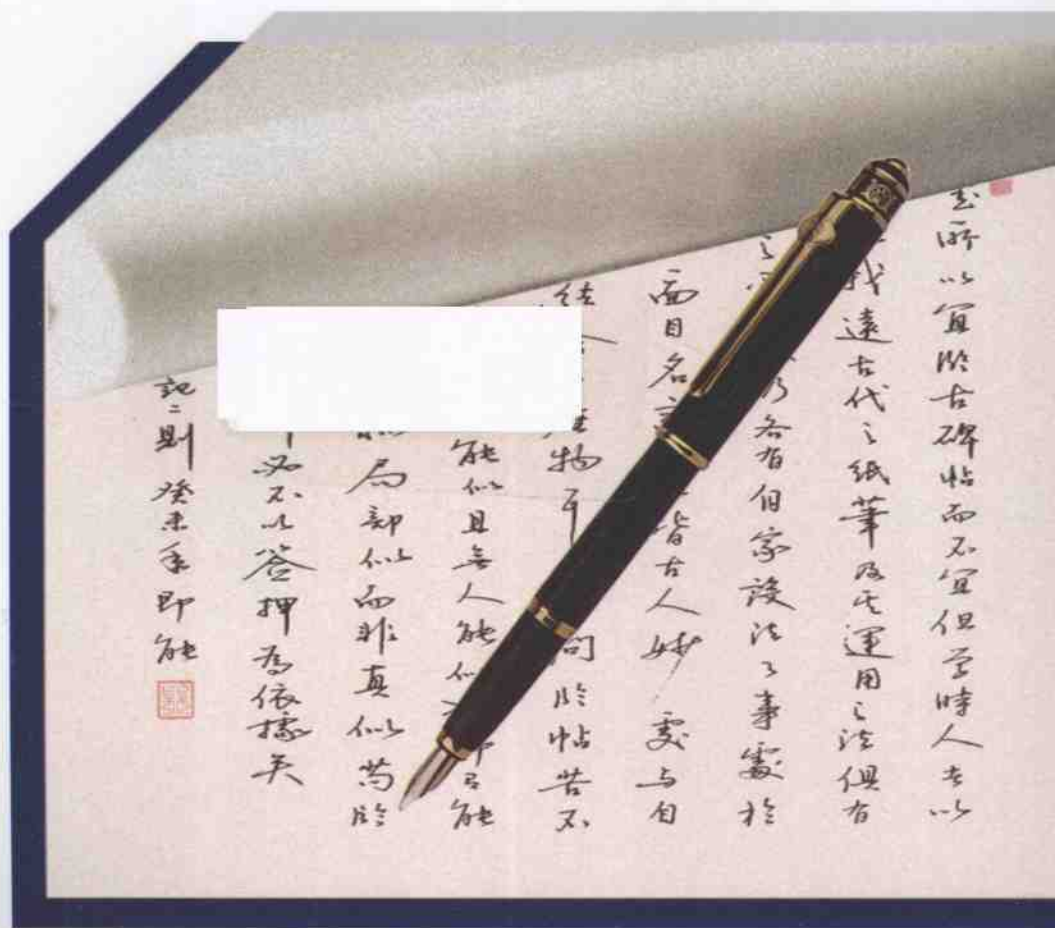 書所以宜臨古碑帖而不宜但学時人者以
我遠古代之紙筆及其運用之法俱有
乃各有自家設法了事處於
面目名 皆古人妙處与自
物耳 問臨帖苦不
能似且無人能似 即有能
局部似而非真似苟臨
必不以签押為依據矣
記二則 癸未 即能